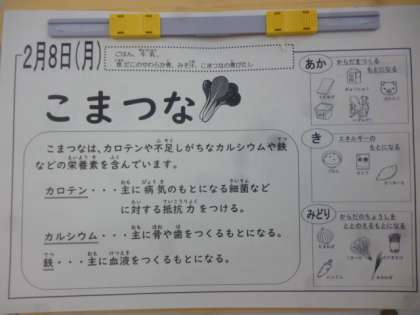 2月8日(月)
ごはん、牛乳、
こまつなの煮びたし
こまつな
こまつなは、カロテンや不足しがちなカルシウムや鉄
などの栄養素を含んでいます。
カロテン・・・主に病気のもとになる細菌など
に対する抵抗力をつける。
カルシウム・・・主に骨や歯をつくるもとになる。
鉄・・・主に血液をつくるもとになる。
あか
からだをつくる
もとになる
き
エネルギーの
もとになる
ごはん
みどり
からだのちょうしを
ととのえるもとになる
にんじん